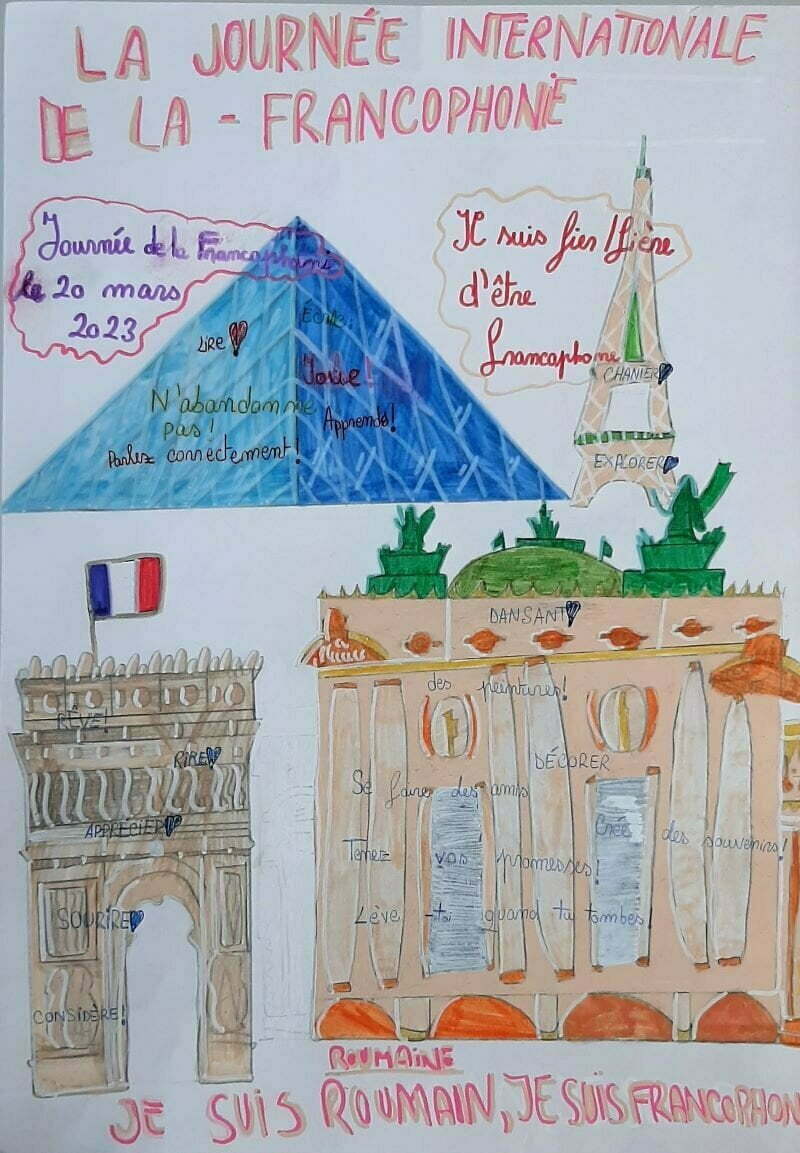 LA JOURNÉE INTERNATIONALE
DE LA - FRANCOPHONIE
Journée de la Francophonie
le 20 mars
2023
Je suis fier/fière
d'être
francophone
LIRE
Écrire
Joue!
N'abandonne
pas!
Apprends!
Parlez correctement!
CHANTER
EXPLORER
DANSANT
des peintures!
DÉCORER
Se faire des amis
Créé des souvenirs!
Tenez vos promesses!
Lève-toi quand tu tombes!
RÊVE!
RIRE
APPRÉCIER
SOURIRE
CONSIDÈRE!
ROUMAINE
JE SUIS ROUMAIN, JE SUIS FRANCOPHON